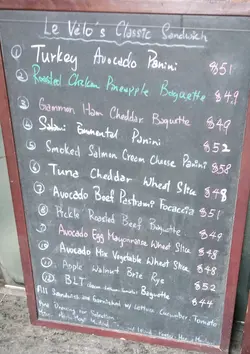 Le Velo's Classic Sandwich
① Turkey Avocado Panini $51
② Roasted Chicken Pineapple Baguette $49
③ Gammon Ham Cheddar Baguette $49
④ Salami Emmental Panini $52
⑤ Smoked Salmon Cream Cheese Panini $58
⑥ Tuna Cheddar Wheel Slice $48
⑦ Avocado Beef Pastrami Focaccia $51
⑧ Pickle Roasted Beef Baguette $48
⑨ Avocado Egg Mayonnaise Wheel Slice $48
⑩ Avocado Mix Vegetable Wheel Slice $48
⑪ Apple Walnut Brie Rye $52
⑫ BLT Baguette $44
All Sandwich are furnished w/ Lettuce Cucumber Tomato